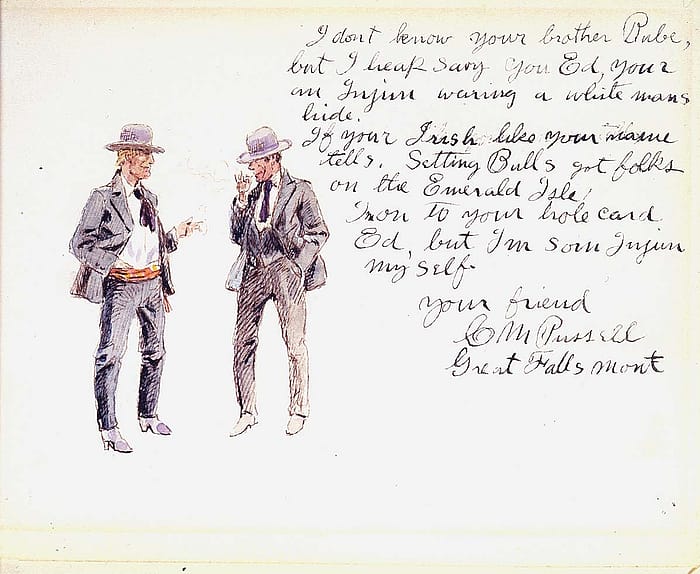 I dont know your brother Bube,
but I heap savy you Ed, your
an Injun waring a white mans
hide.
If your Irish like your name
tells. Setting Bulls got folks
on the Emerald Isle,
Imon to your hole card
Ed, but I'm som Injun
my self.
your friend
C M Russell
Great Falls Mont